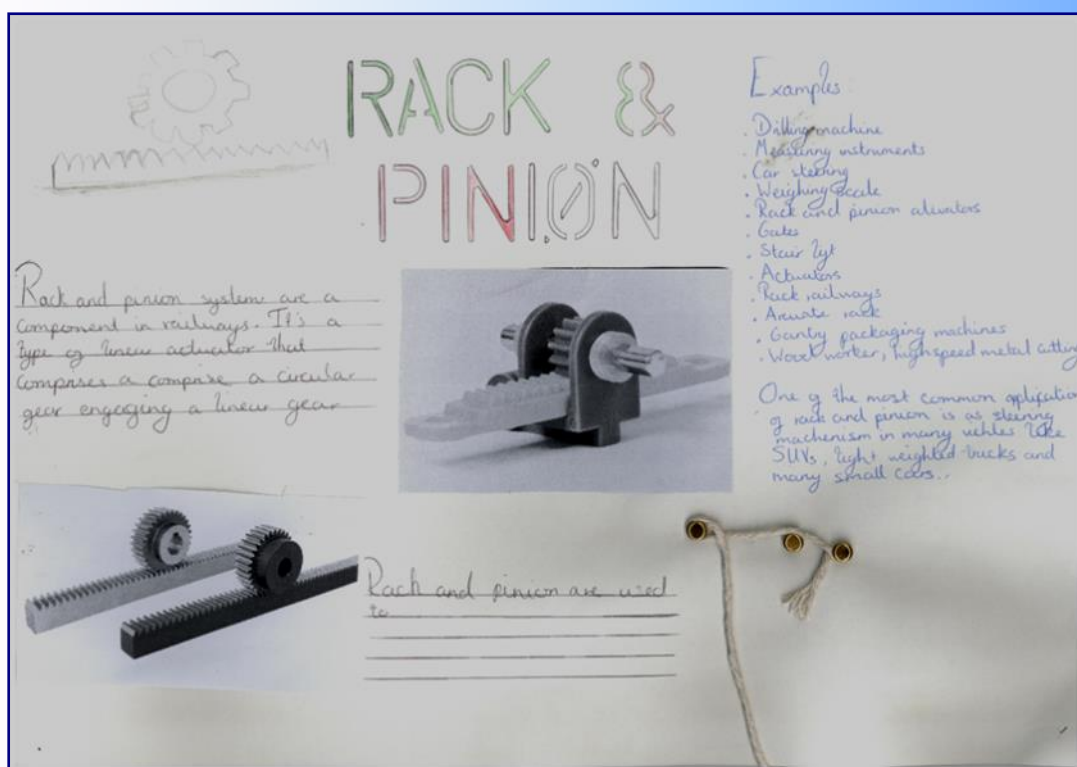 RACK &
PINION
Rack and pinion system are a
component in railways. It's a
type of linear actuator that
comprises a comprise a circular
gear engaging a linear gear
Rack and pinion are used
to
Examples:
. Drilling machine
. Measuring instruments
. Car steering
. Weighing scale
. Rack and pinion alivators
. Gates
. Stair lift
. Actuators
. Rack railways
. Arcuate rack
. Gantry packaging machines
. Wood worker, high speed metal cutting
One of the most common application
of rack and pinion is as steering
machenism in many vehiles like
SUVs, light weighted trucks and
many small cars..